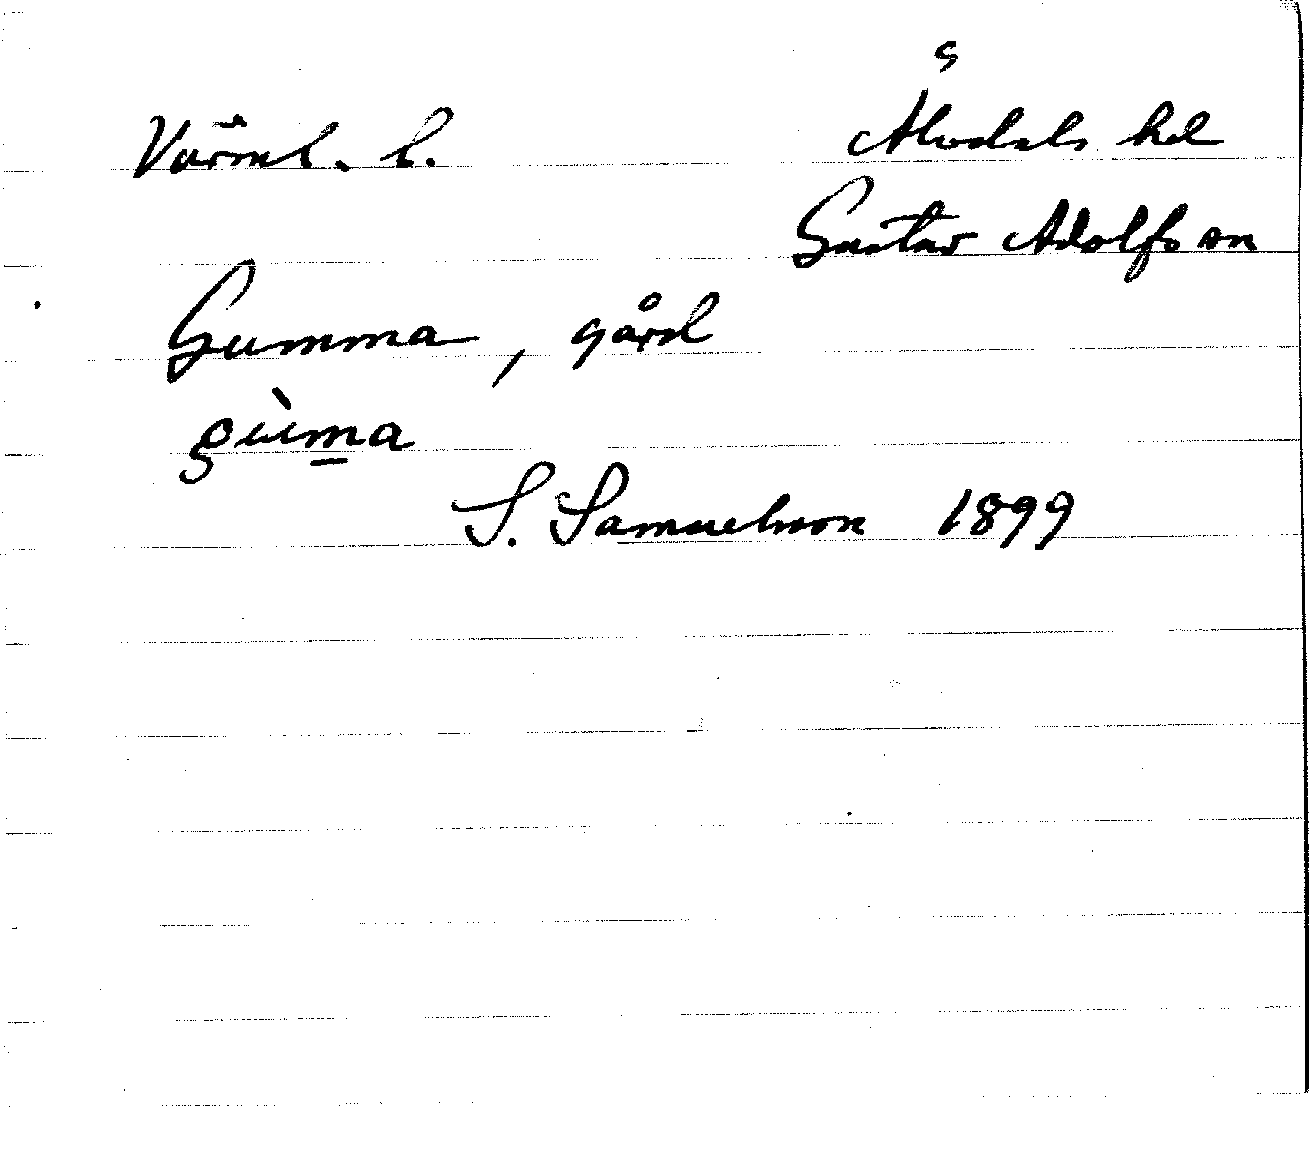 Värml. l. Älvdals hd
Gustav Adolfs sn
Gumma, gård
gùm̲a
S. Samuelsson 1899